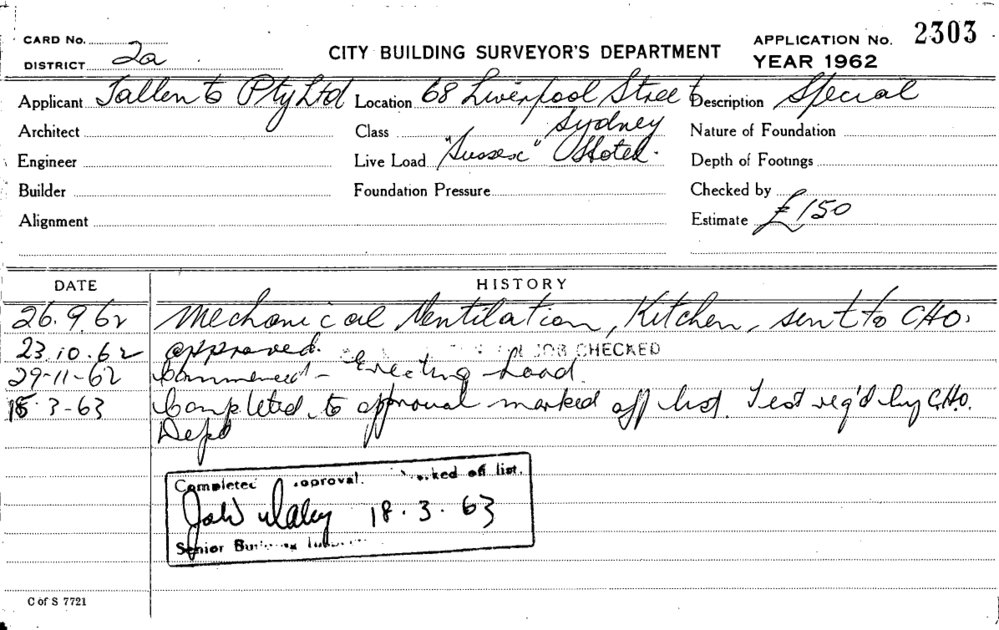 CARD No.
DISTRICT 2a
CITY BUILDING SURVEYOR'S DEPARTMENT
APPLICATION No. 2303
YEAR 1962
Applicant Tallents Pty Ltd Location 68 Liverpool Street Description Special
Architect Class Sydney Nature of Foundation
Engineer Live Load "Sussex" Hotel. Depth of Footings
Builder Foundation Pressure Checked by
Alignment Estimate £150
DATE HISTORY
26.9.62 Mechanical Ventilation, Kitchen, sent to CHO.
23.10.62 approved. JOB CHECKED
29-11-62 Commenced - Erecting hood.
18.3-63 Completed to approval marked off list. Test req'd by C.H.O.
Dept
Completed approval. marked off list.
18.3.63
Senior Building
C of S 7721